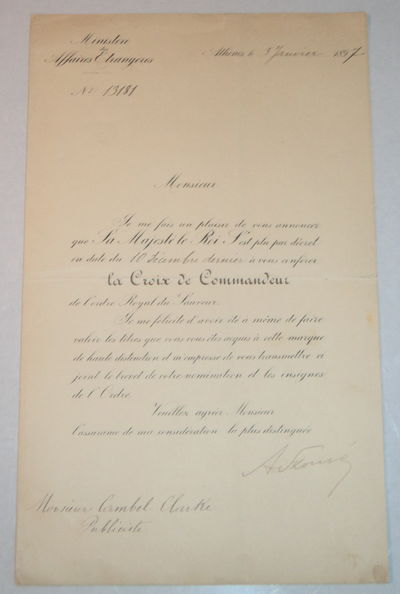 Ministère
des
Affaires Etrangères
Athènes le 5 Janvier 1897
No 13181
Monsieur
Je me fais un plaisir de vous annoncer
que Sa Majesté le Roi S'est plu par décret
en date du 10 Décembre dernier à vous conférer
la Croix de Commandeur
de l'ordre Royal du Sauveur.
Je me félicite d'avoir été à même de faire
valoir les titres que vous vous êtes acquis à cette marque
de haute distinction et m'empresse de vous transmettre ci
joint le brevet de votre nomination et les insignes
de l'Ordre
Veuillez agréer Monsieur
l'assurance de ma considération la plus distinguée
Monsieur Clarke
Publiciste